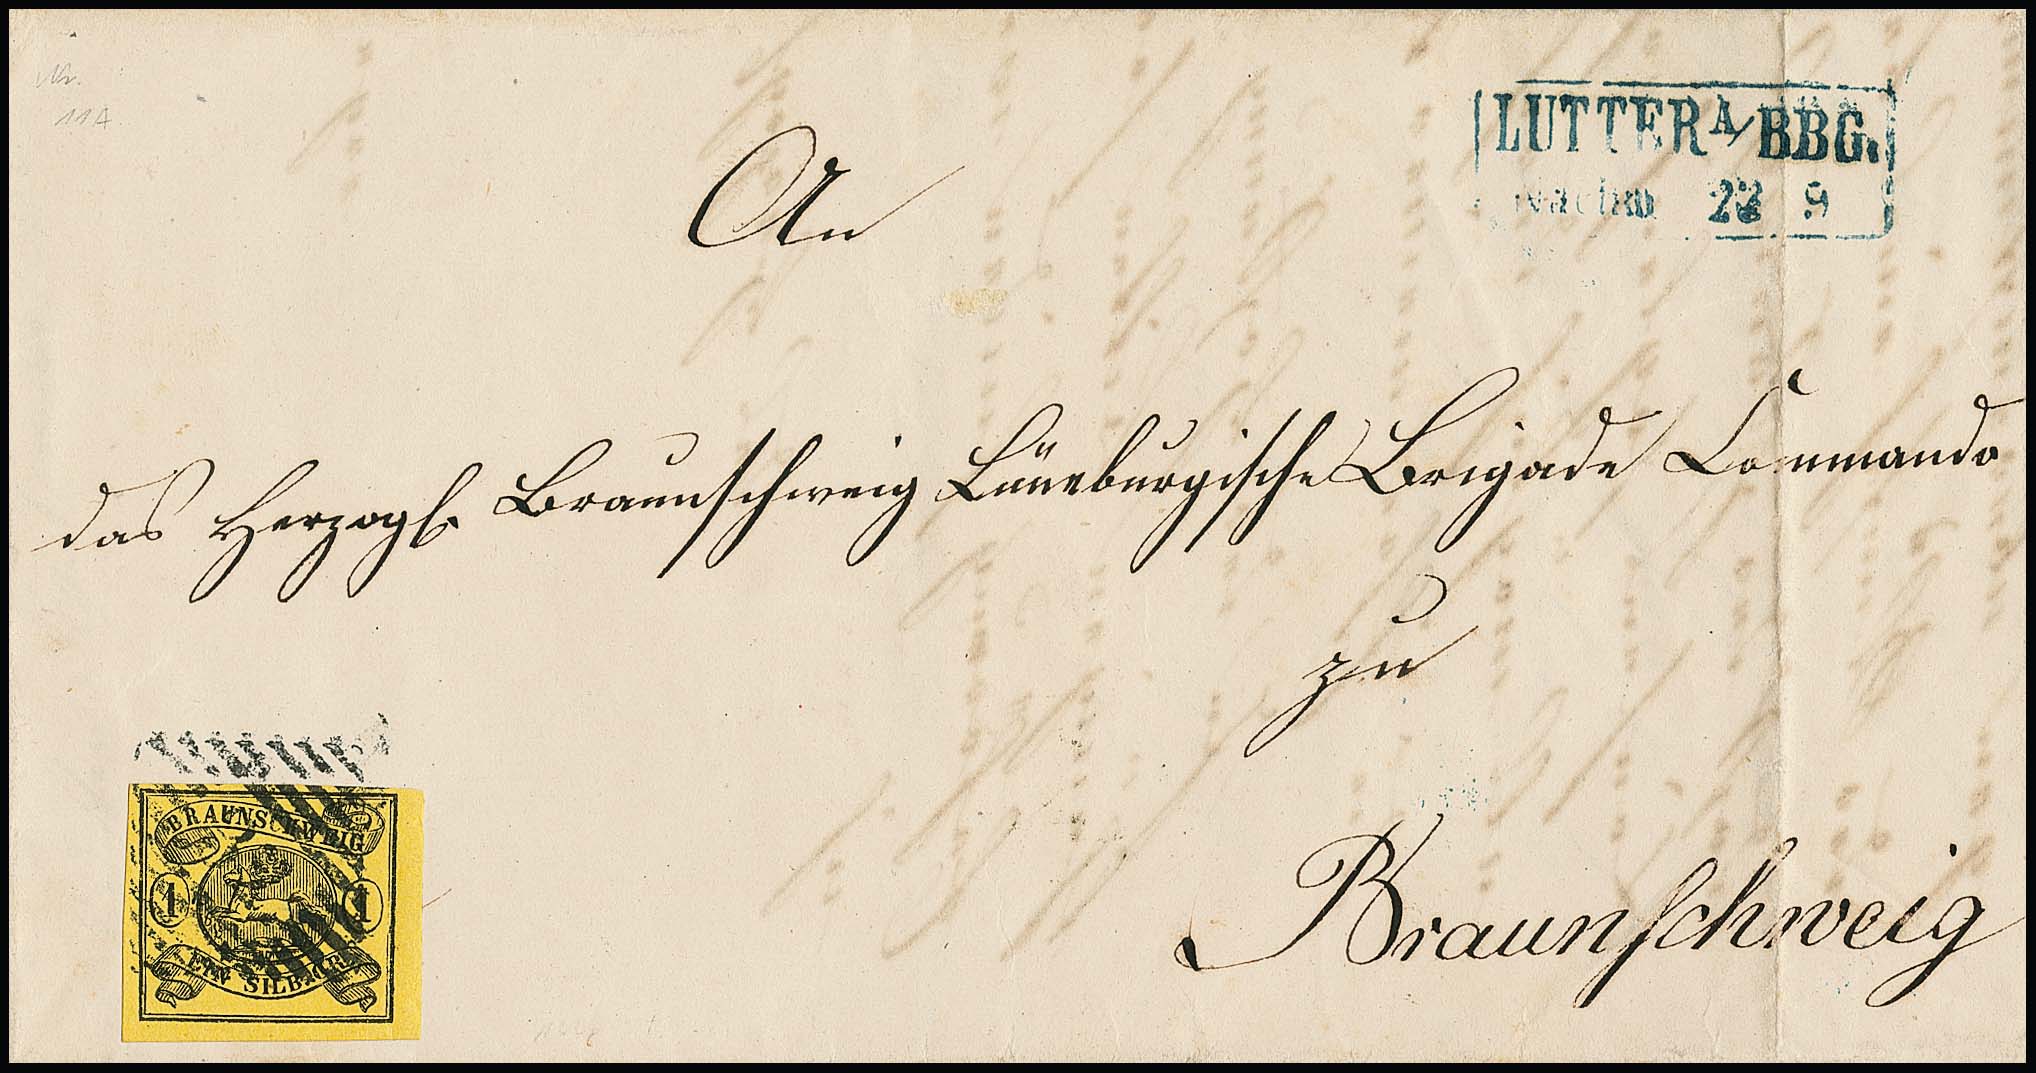 11A
LUTTER A/BBG.
Nachm 9
An
das Herzogl. Braunschweig Lüneburgische Brigade Commando
zu
Braunschweig
BRAUNSCHWEIG
1 1
EIN SILB.GR.